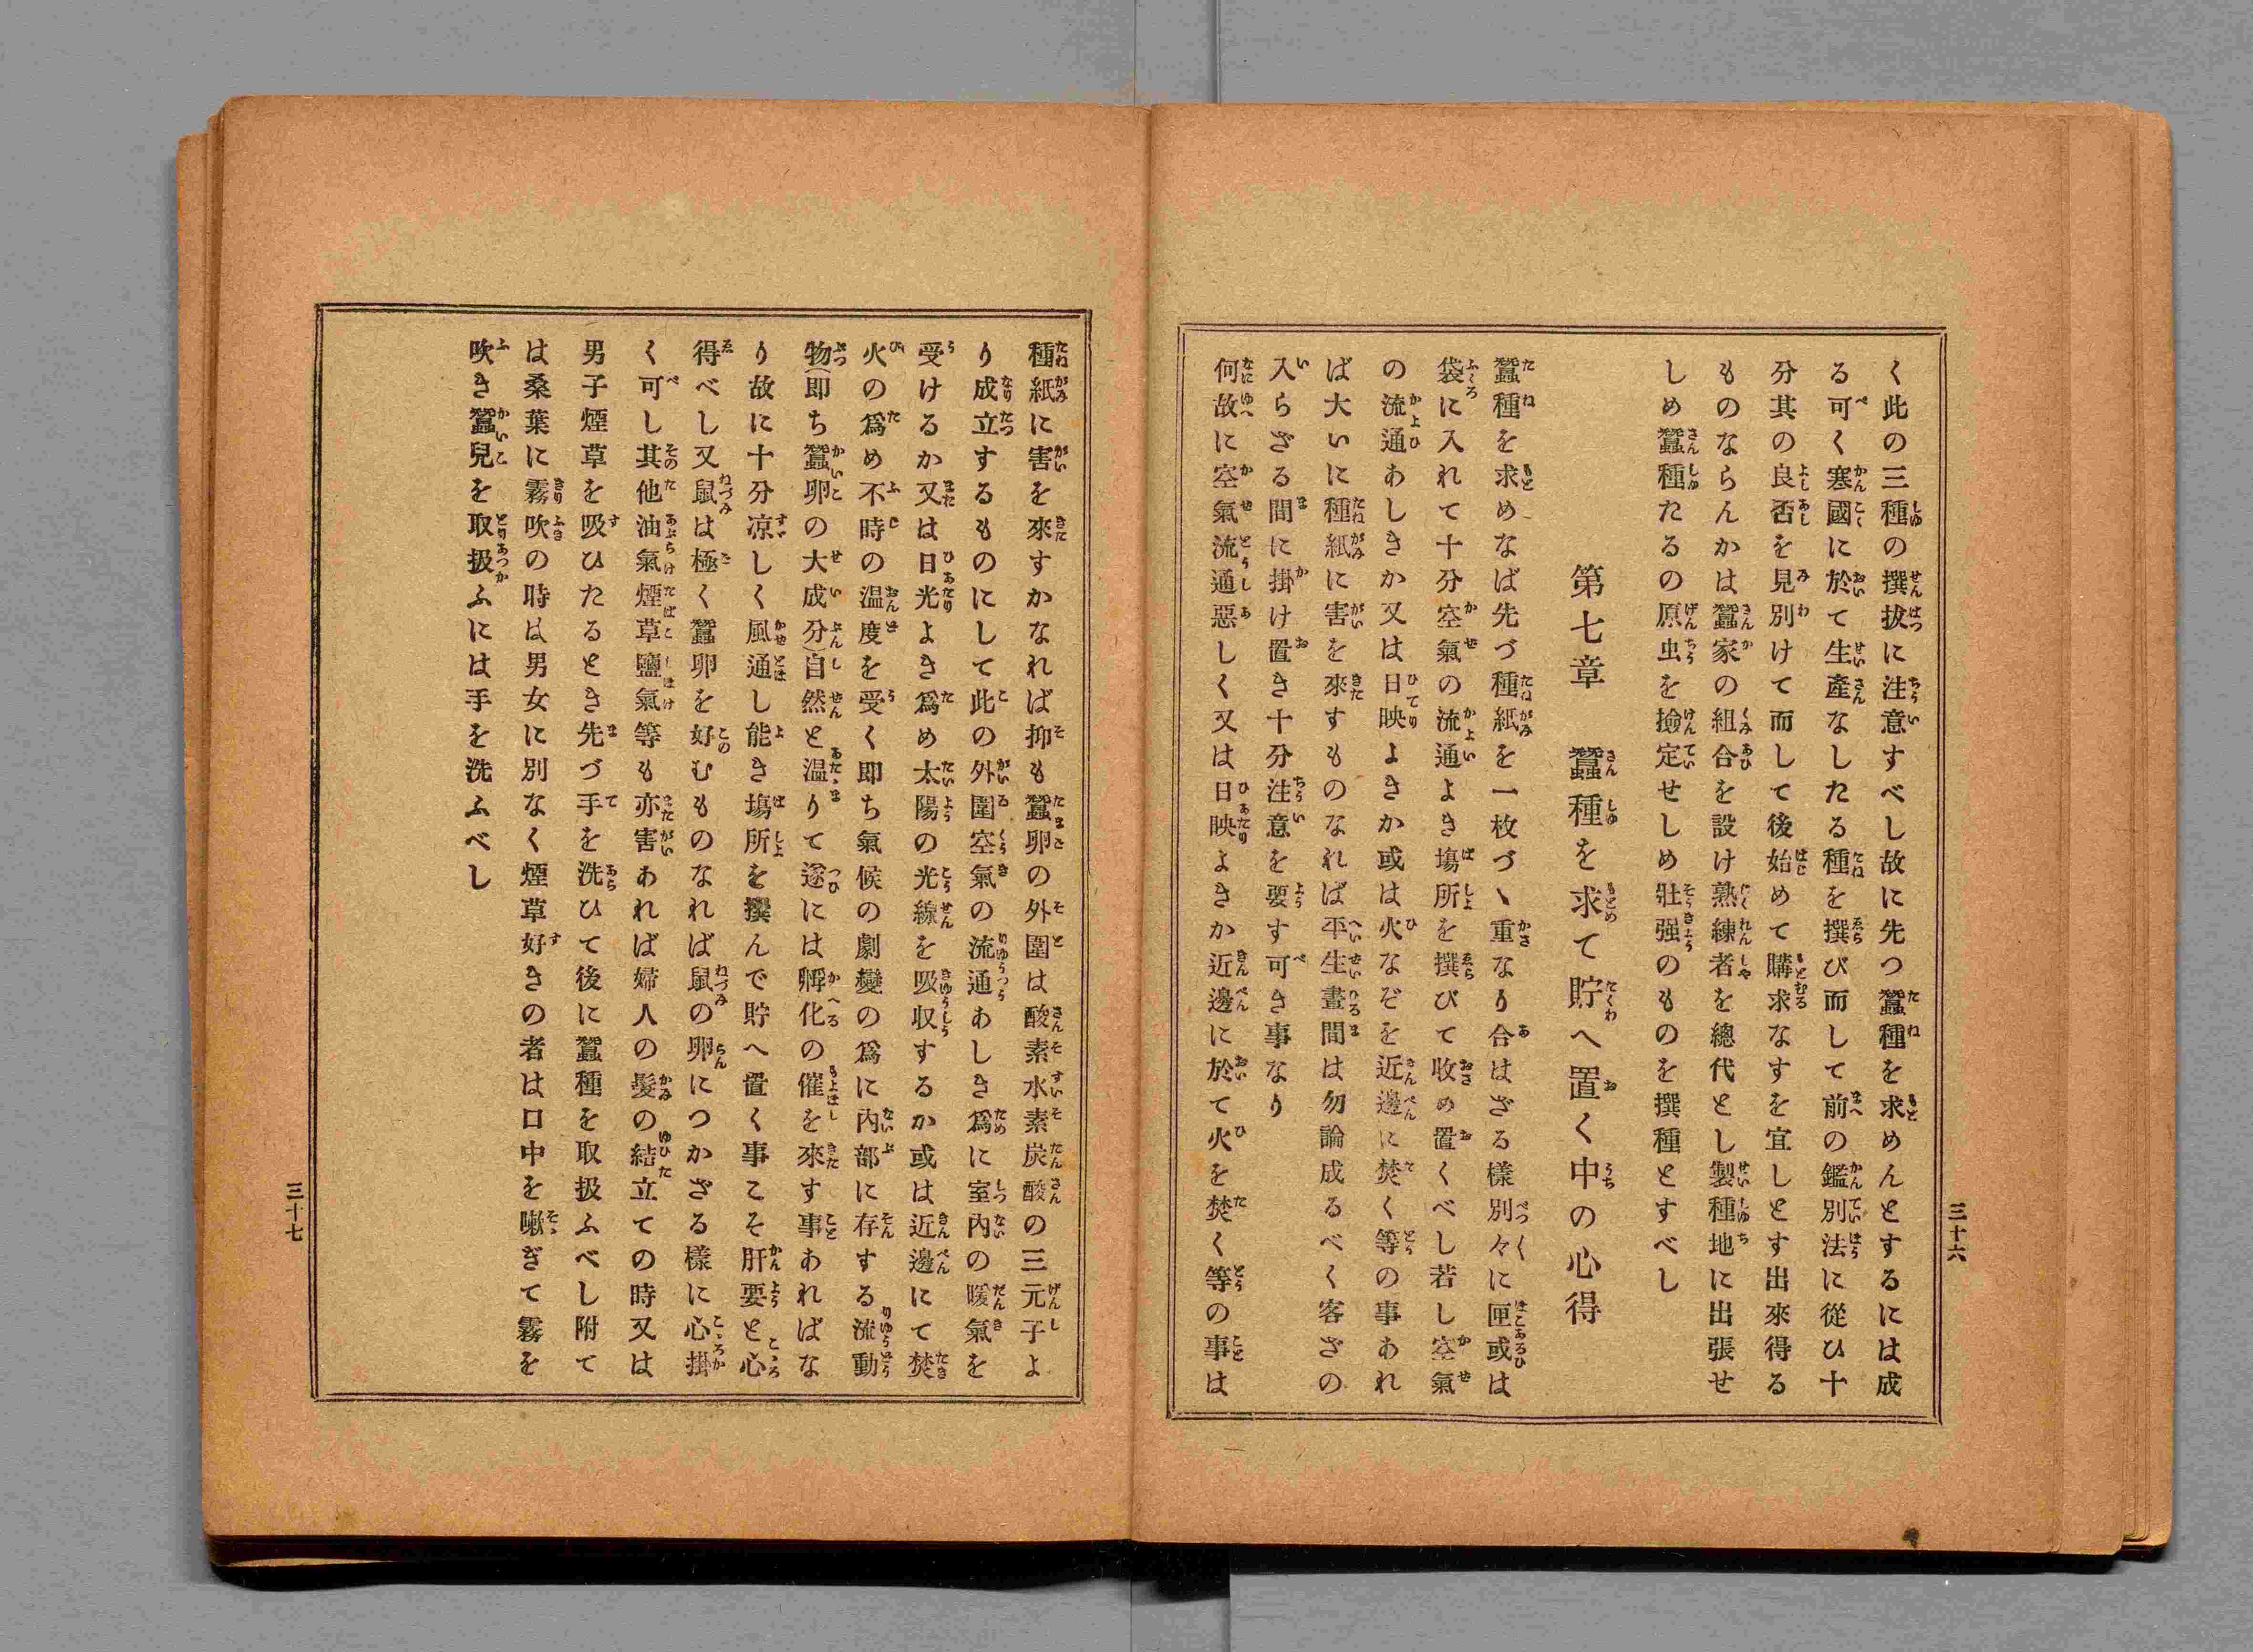 く此の三種の撰拔に注意すべし故に先つ蠶種を求めんとするには成
る可く寒國に於て生產なしたる種を撰び而して前の鑑別法に從ひ十
分其の良否を見別けて而して後始めて購求なすを宜しとす出來得る
ものならんかは蠶家の組合を設け熟練者を總代とし製種地に出張せ
しめ蠶種たるの原虫を撿定せしめ壯强のものを撰種とすべし
第七章　蠶種を求て貯へ置く中の心得
蠶種を求めなば先づ種紙を一枚づヽ重なり合はざる樣別々に匣或は
袋に入れて十分空氣の流通よき塲所を撰びて收め置くべし若し空氣
の流通あしきか又は日映よきか或は火なぞを近邊に焚く等の事あれ
ば大いに種紙に害を來すものなれば平生晝間は勿論成るべく客ざの
入らざる間に掛け置き十分注意を要す可き事なり
何故に空氣流通惡しく又は日映よきか近邊に於て火を焚く等の事は
三十六
種紙に害を來すかなれば抑も蠶卵の外圍は酸素水素炭酸の三元子よ
り成立するものにして此の外圍空氣の流通あしき爲に室內の暖氣を
受けるか又は日光よき爲め太陽の光線を吸収するか或は近邊にて焚
火の爲め不時の温度を受く即ち氣候の劇變の爲に內部に存する流動
物(即ち蠶卵の大成分)自然と温りて遂には孵化の催を來す事あればな
り故に十分凉しく風通し能き塲所を撰んで貯へ置く事こそ肝要と心
得べし又鼠は極く蠶卵を好むものなれば鼠の卵につかざる樣に心掛
く可し其他油氣煙草鹽氣等も亦害あれば婦人の髮の結立ての時又は
男子煙草を吸ひたるとき先づ手を洗ひて後に蠶種を取扱ふべし附て
は桑葉に霧吹の時は男女に別なく煙草好きの者は口中を嗽ぎて霧を
吹き蠶兒を取扱ふには手を洗ふべし
三十七